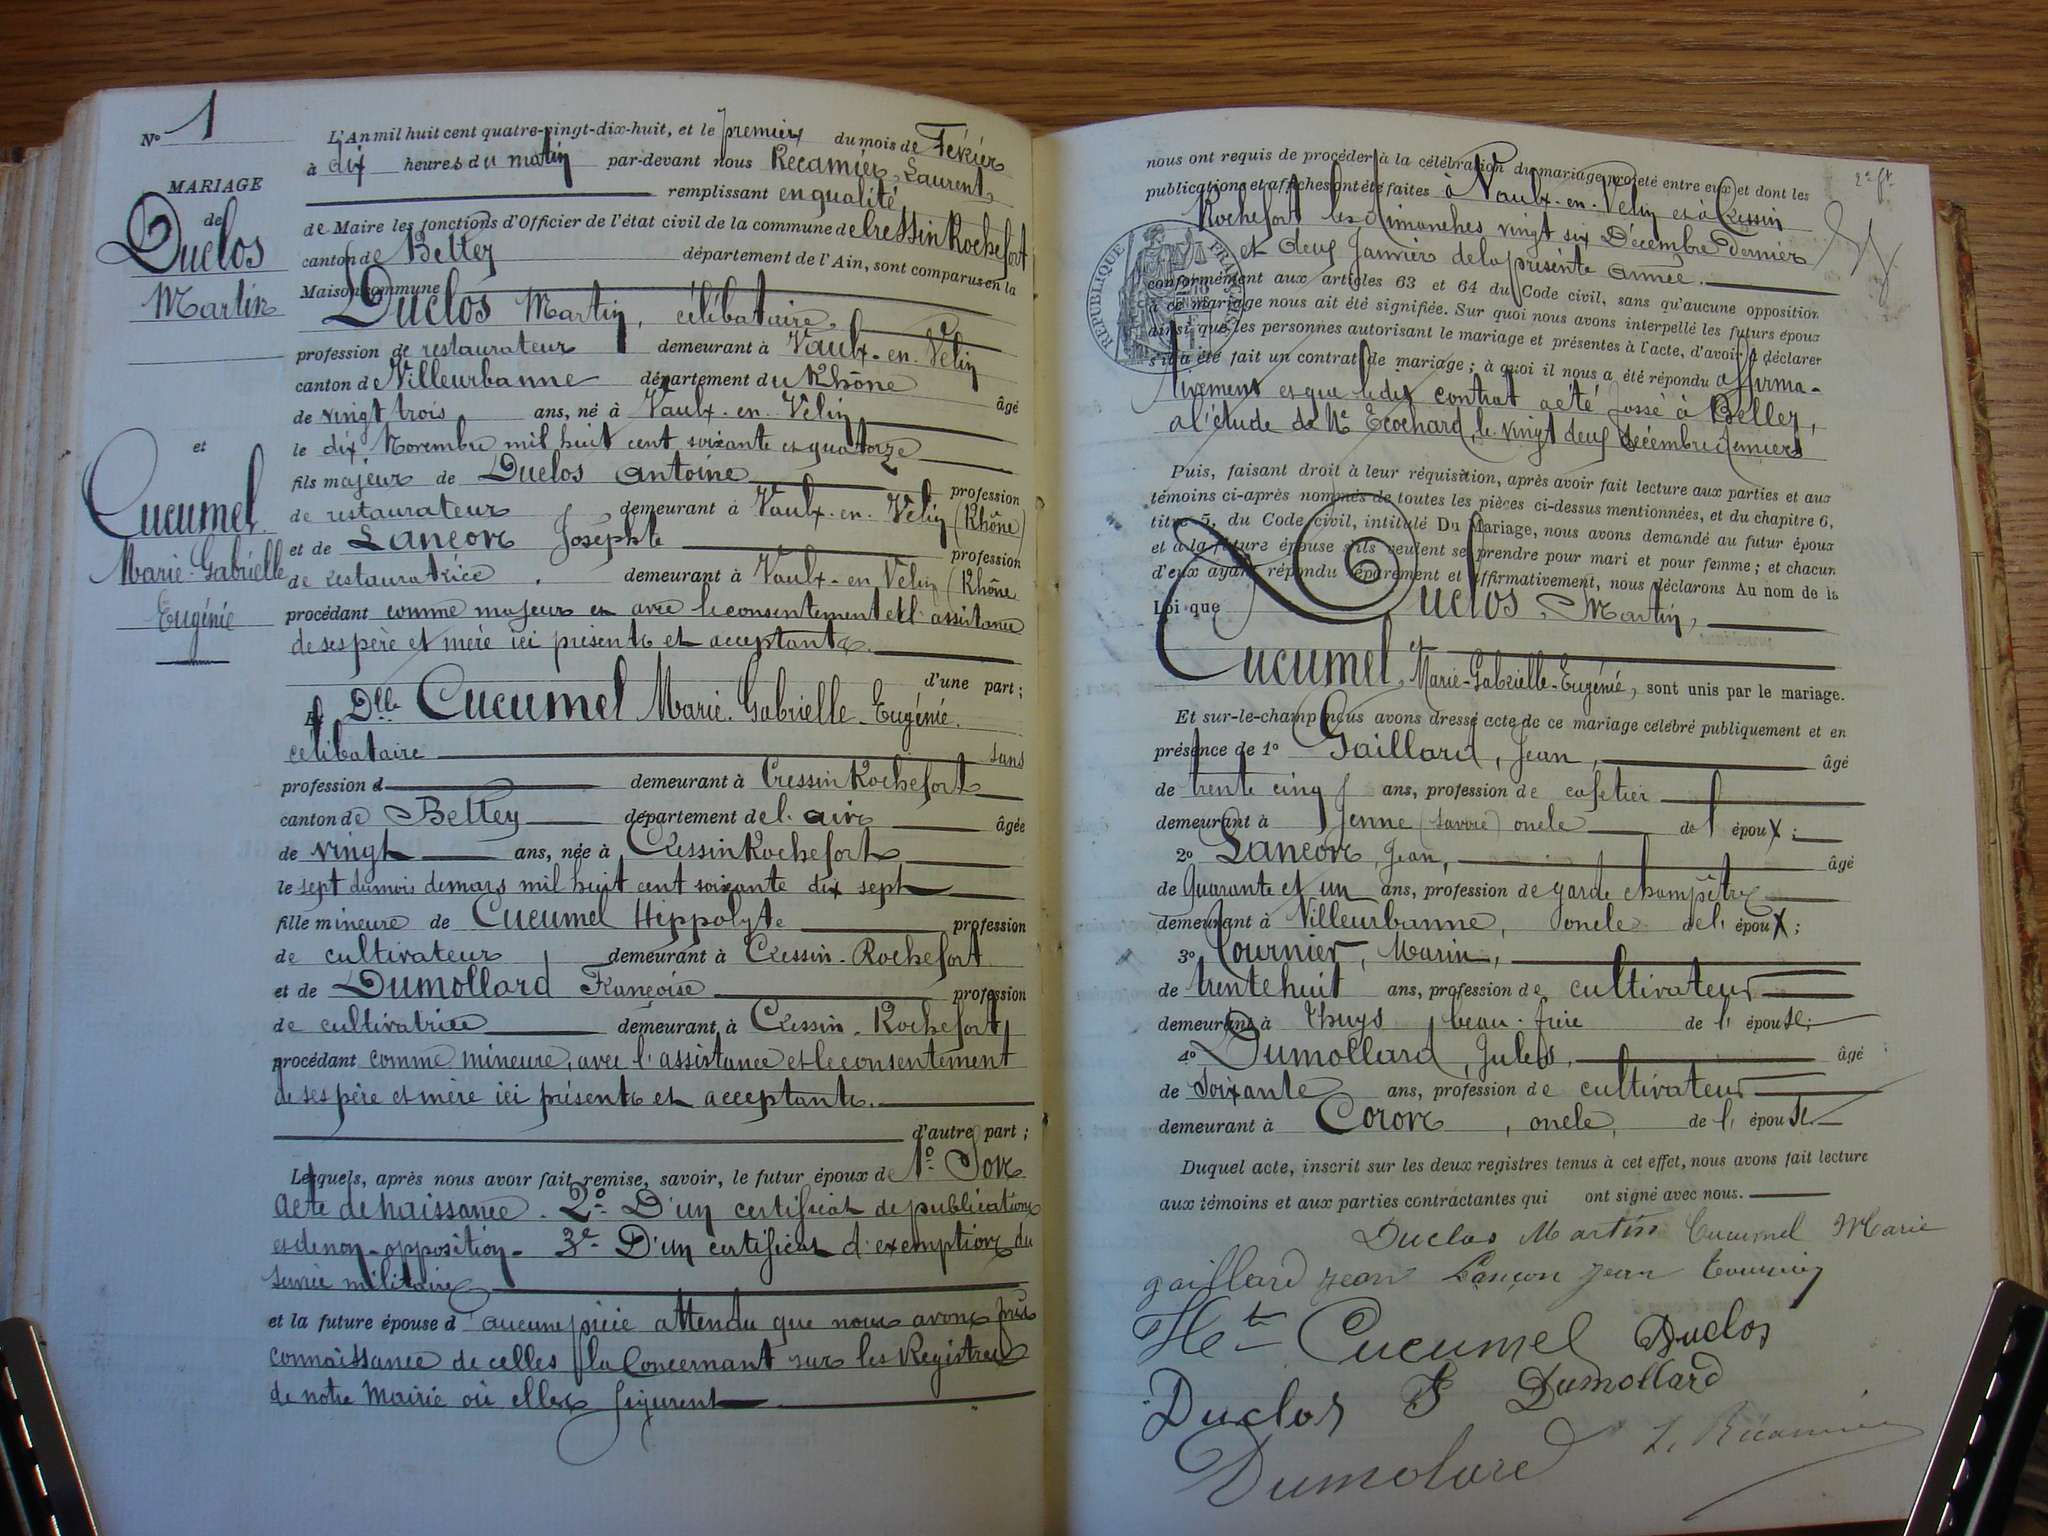 N° 1
MARIAGE
de
Duclos
Martin
et
Cucumel
Marie-Gabrielle
Eugénie
L'An mil huit cent quatre-vingt-dix-huit, et le premier du mois de Février
à dix heures du matin par-devant nous Recamier, Laurent,
remplissant en qualité
de Maire les fonctions d'Officier de l'état civil de la commune de Cressin Rochefort
canton de Belley département de l'Ain, sont comparus en la
Maison commune
Duclos Martin, célibataire,
profession de restaurateur demeurant à Vaulx-en-Velin
canton de Villeurbanne département du Rhône âgé
de vingt trois ans, né à Vaulx-en-Velin
le dix Novembre mil huit cent soixante et quatorze
fils majeur de Duclos Antoine profession
de restaurateur demeurant à Vaulx-en-Velin (Rhône)
et de Lançon Josephte profession
de restauratrice demeurant à Vaulx-en-Velin (Rhône
procédant comme majeur et avec le consentement et l'assistance
de ses père et mère ici présents et acceptants.
d'une part;
Et Dlle Cucumel Marie-Gabrielle-Eugénie.
célibataire sans
profession d demeurant à Cressin Rochefort
canton de Belley département de l'ain âgée
de vingt ans, née à Cressin Rochefort
le sept du mois de mars mil huit cent soixante dix sept
fille mineure de Cucumel Hippolyte profession
de cultivateur demeurant à Cressin-Rochefort
et de Dumollard Françoise profession
de cultivatrice demeurant à Cressin-Rochefort
procédant comme mineure, avec l'assistance et le consentement
de ses père et mère ici présents et acceptants.
d'autre part;
Lesquels, après nous avoir fait remise, savoir, le futur époux de 1° Son
Acte de Naissance. 2° D'un certificat de publications
et de non-opposition. 3° D'un certificat d'exemption du
Service militaire
et la future épouse d'aucune pièce attendu que nous avons pris
connaissance de celles la Concernant sur les Registres
de notre Mairie où elles figurent
nous ont requis de procéder à la célébration du mariage projeté entre eux et dont les
publications et affiches ont été faites à Vaulx-en-Velin et à Cressin
Rochefort les dimanches vingt six Décembre dernier
et deux Janvier de la présente année.
RÉPUBLIQUE FRANÇAISE
conformément aux articles 63 et 64 du Code civil, sans qu'aucune opposition
à ce mariage nous ait été signifiée. Sur quoi nous avons interpellé les futurs époux
ainsi que les personnes autorisant le mariage et présentes à l'acte, d'avoir à déclarer
s'il a été fait un contrat de mariage; à quoi il nous a été répondu affirma-
tivement et que le dit contrat a été passé à Belley,
a l'étude de Me Ecochard, le vingt deux décembre dernier
Puis, faisant droit à leur réquisition, après avoir fait lecture aux parties et aux
témoins ci-après nommés de toutes les pièces ci-dessus mentionnées, et du chapitre 6,
titre 5, du Code civil, intitulé Du Mariage, nous avons demandé au futur époux
et à la future épouse s'ils veulent se prendre pour mari et pour femme; et chacun
d'eux ayant répondu séparément et affirmativement, nous déclarons Au nom de la
Loi que Duclos, Martin,
et
Cucumel, Marie-Gabrielle-Eugénie, sont unis par le mariage.
Et sur-le-champ nous avons dressé acte de ce mariage célébré publiquement et en
présence de 1° Gaillard, Jean, âgé
de trente cinq ans, profession de cafetier
demeurant à Yenne (Savoie) oncle de l'époux;
2° Lançon, Jean, âgé
de Quarante et un ans, profession de garde champêtre
demeurant à Villeurbanne, oncle de l'époux;
3° Tournier, Marin,
de trente huit ans, profession de cultivateur
demeurant à Thuys beau-frère de l'épouse;
4° Dumollard, Jules, âgé
de Soixante ans, profession de cultivateur
demeurant à Coron, oncle, de l'épouse.
Duquel acte, inscrit sur les deux registres tenus à cet effet, nous avons fait lecture
aux témoins et aux parties contractantes qui ont signé avec nous.
Duclos Martin Cucumel Marie
gaillard jean Lançon jean Tournier
Hte Cucumel Duclos
Duclos F Dumollard
Dumolard L. Récamier